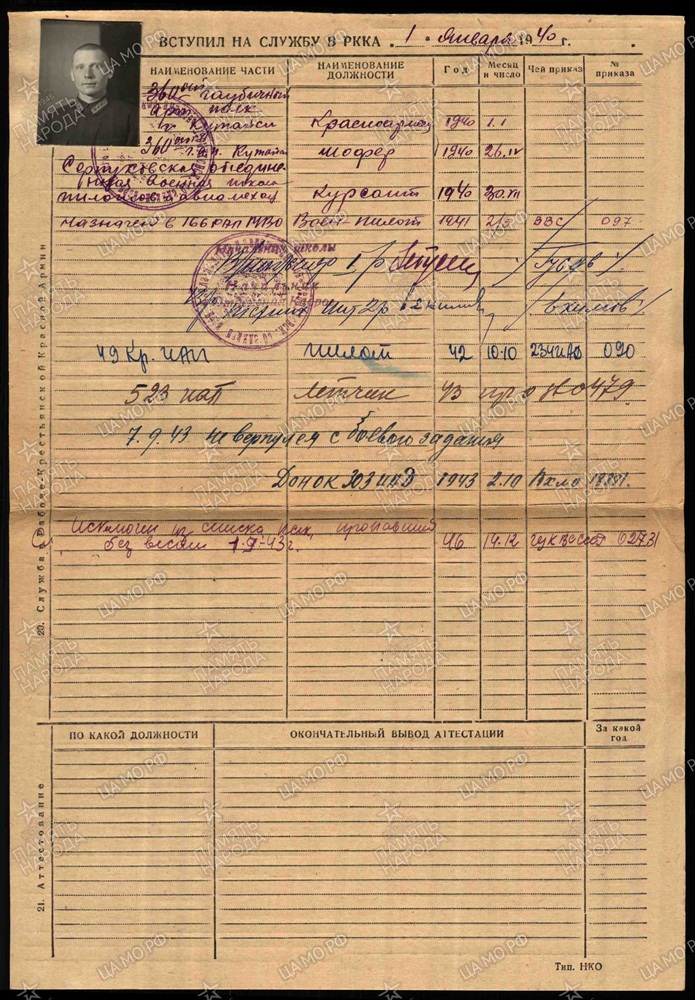 ВСТУПИЛ НА СЛУЖБУ В РККА „1" Января 1940 г.
НАИМЕНОВАНИЕ ЧАСТИ НАИМЕНОВАНИЕ ДОЛЖНОСТИ Год Месяц и число Чей приказ № приказа
360ый гаубичный
арт полк
г. Кутаиси Красноармеец 1940 1.I
360ый г.а.п. Кутаиси шофер 1940 26.IV
Серпуховская объедине-
ная военная школа
пилотов и авиамехан Курсант 1940 30.VII
Назначен в 166 РАП МВО Воен-пилот 1941 ВВС 097
Начальник школы
/Гусев/
Начальник
49 Кр. ИАП пилот 42 10.10 234 ИАД 090
523 иап летчик 43 пр 0479
7.9.43 не вернулся с боевого задания
Донок 303 ИАД 1943 2.10
Исключен из списка как пропавший
без вести 7.9-43 г. 46 14.12 02731
20. Служба в Рабоче-Крестьянской Красной Армии
ПО КАКОЙ ДОЛЖНОСТИ ОКОНЧАТЕЛЬНЫЙ ВЫВОД АТТЕСТАЦИИ За какой год
21. Аттестование
Тип. НКО
ПАМЯТЬ НАРОДА
ЦАМО.РФ